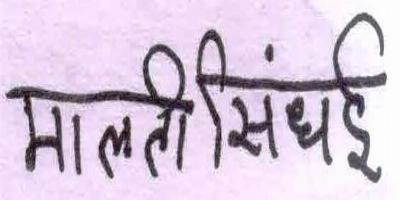 मालती सिंघई